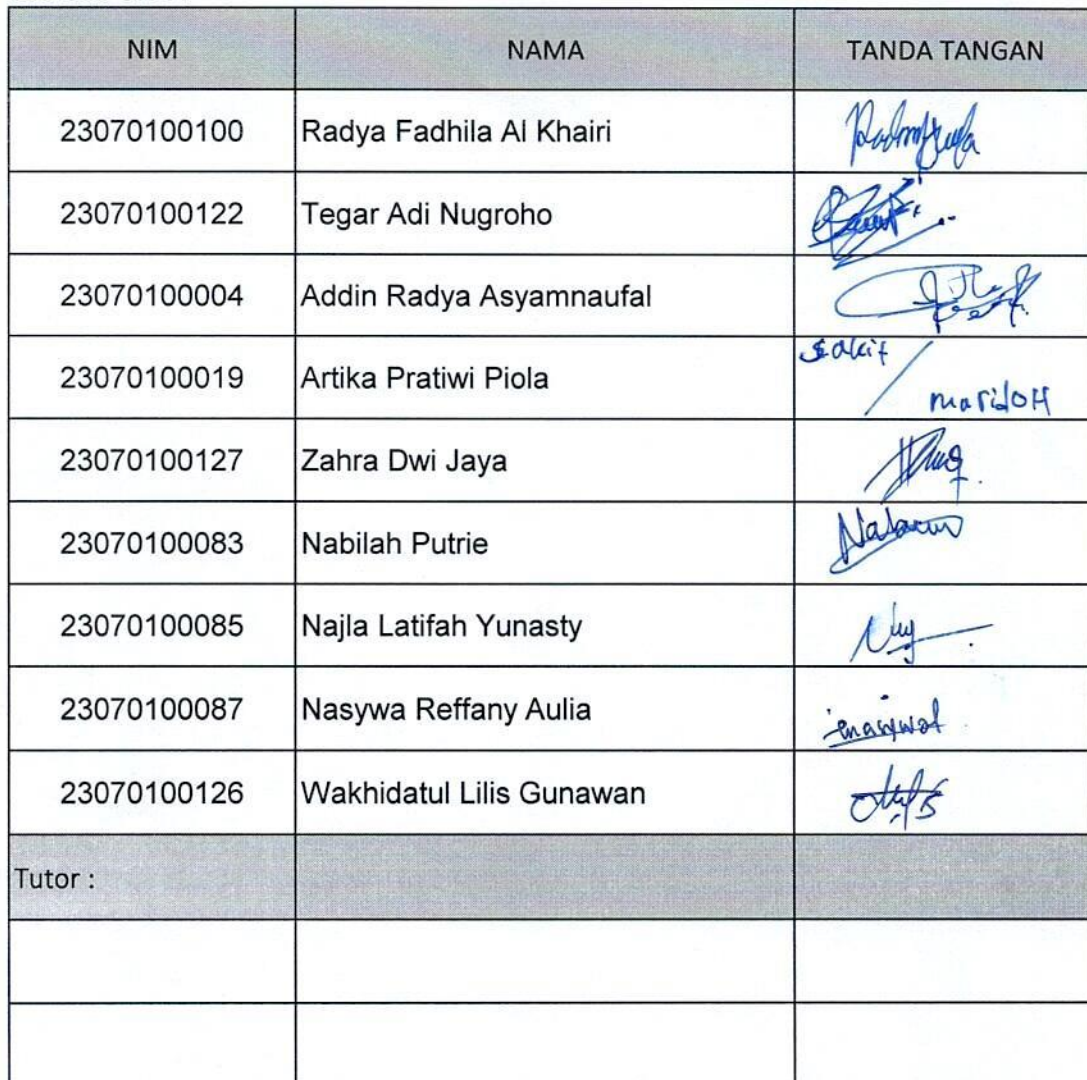 NIM NAMA TANDA TANGAN
23070100100 Radya Fadhila Al Khairi
23070100122 Tegar Adi Nugroho
23070100004 Addin Radya Asyamnaufal
23070100019 Artika Pratiwi Piola sakit /
23070100127 Zahra Dwi Jaya
23070100083 Nabilah Putrie
23070100085 Najla Latifah Yunasty
23070100087 Nasywa Reffany Aulia
23070100126 Wakhidatul Lilis Gunawan
Tutor :